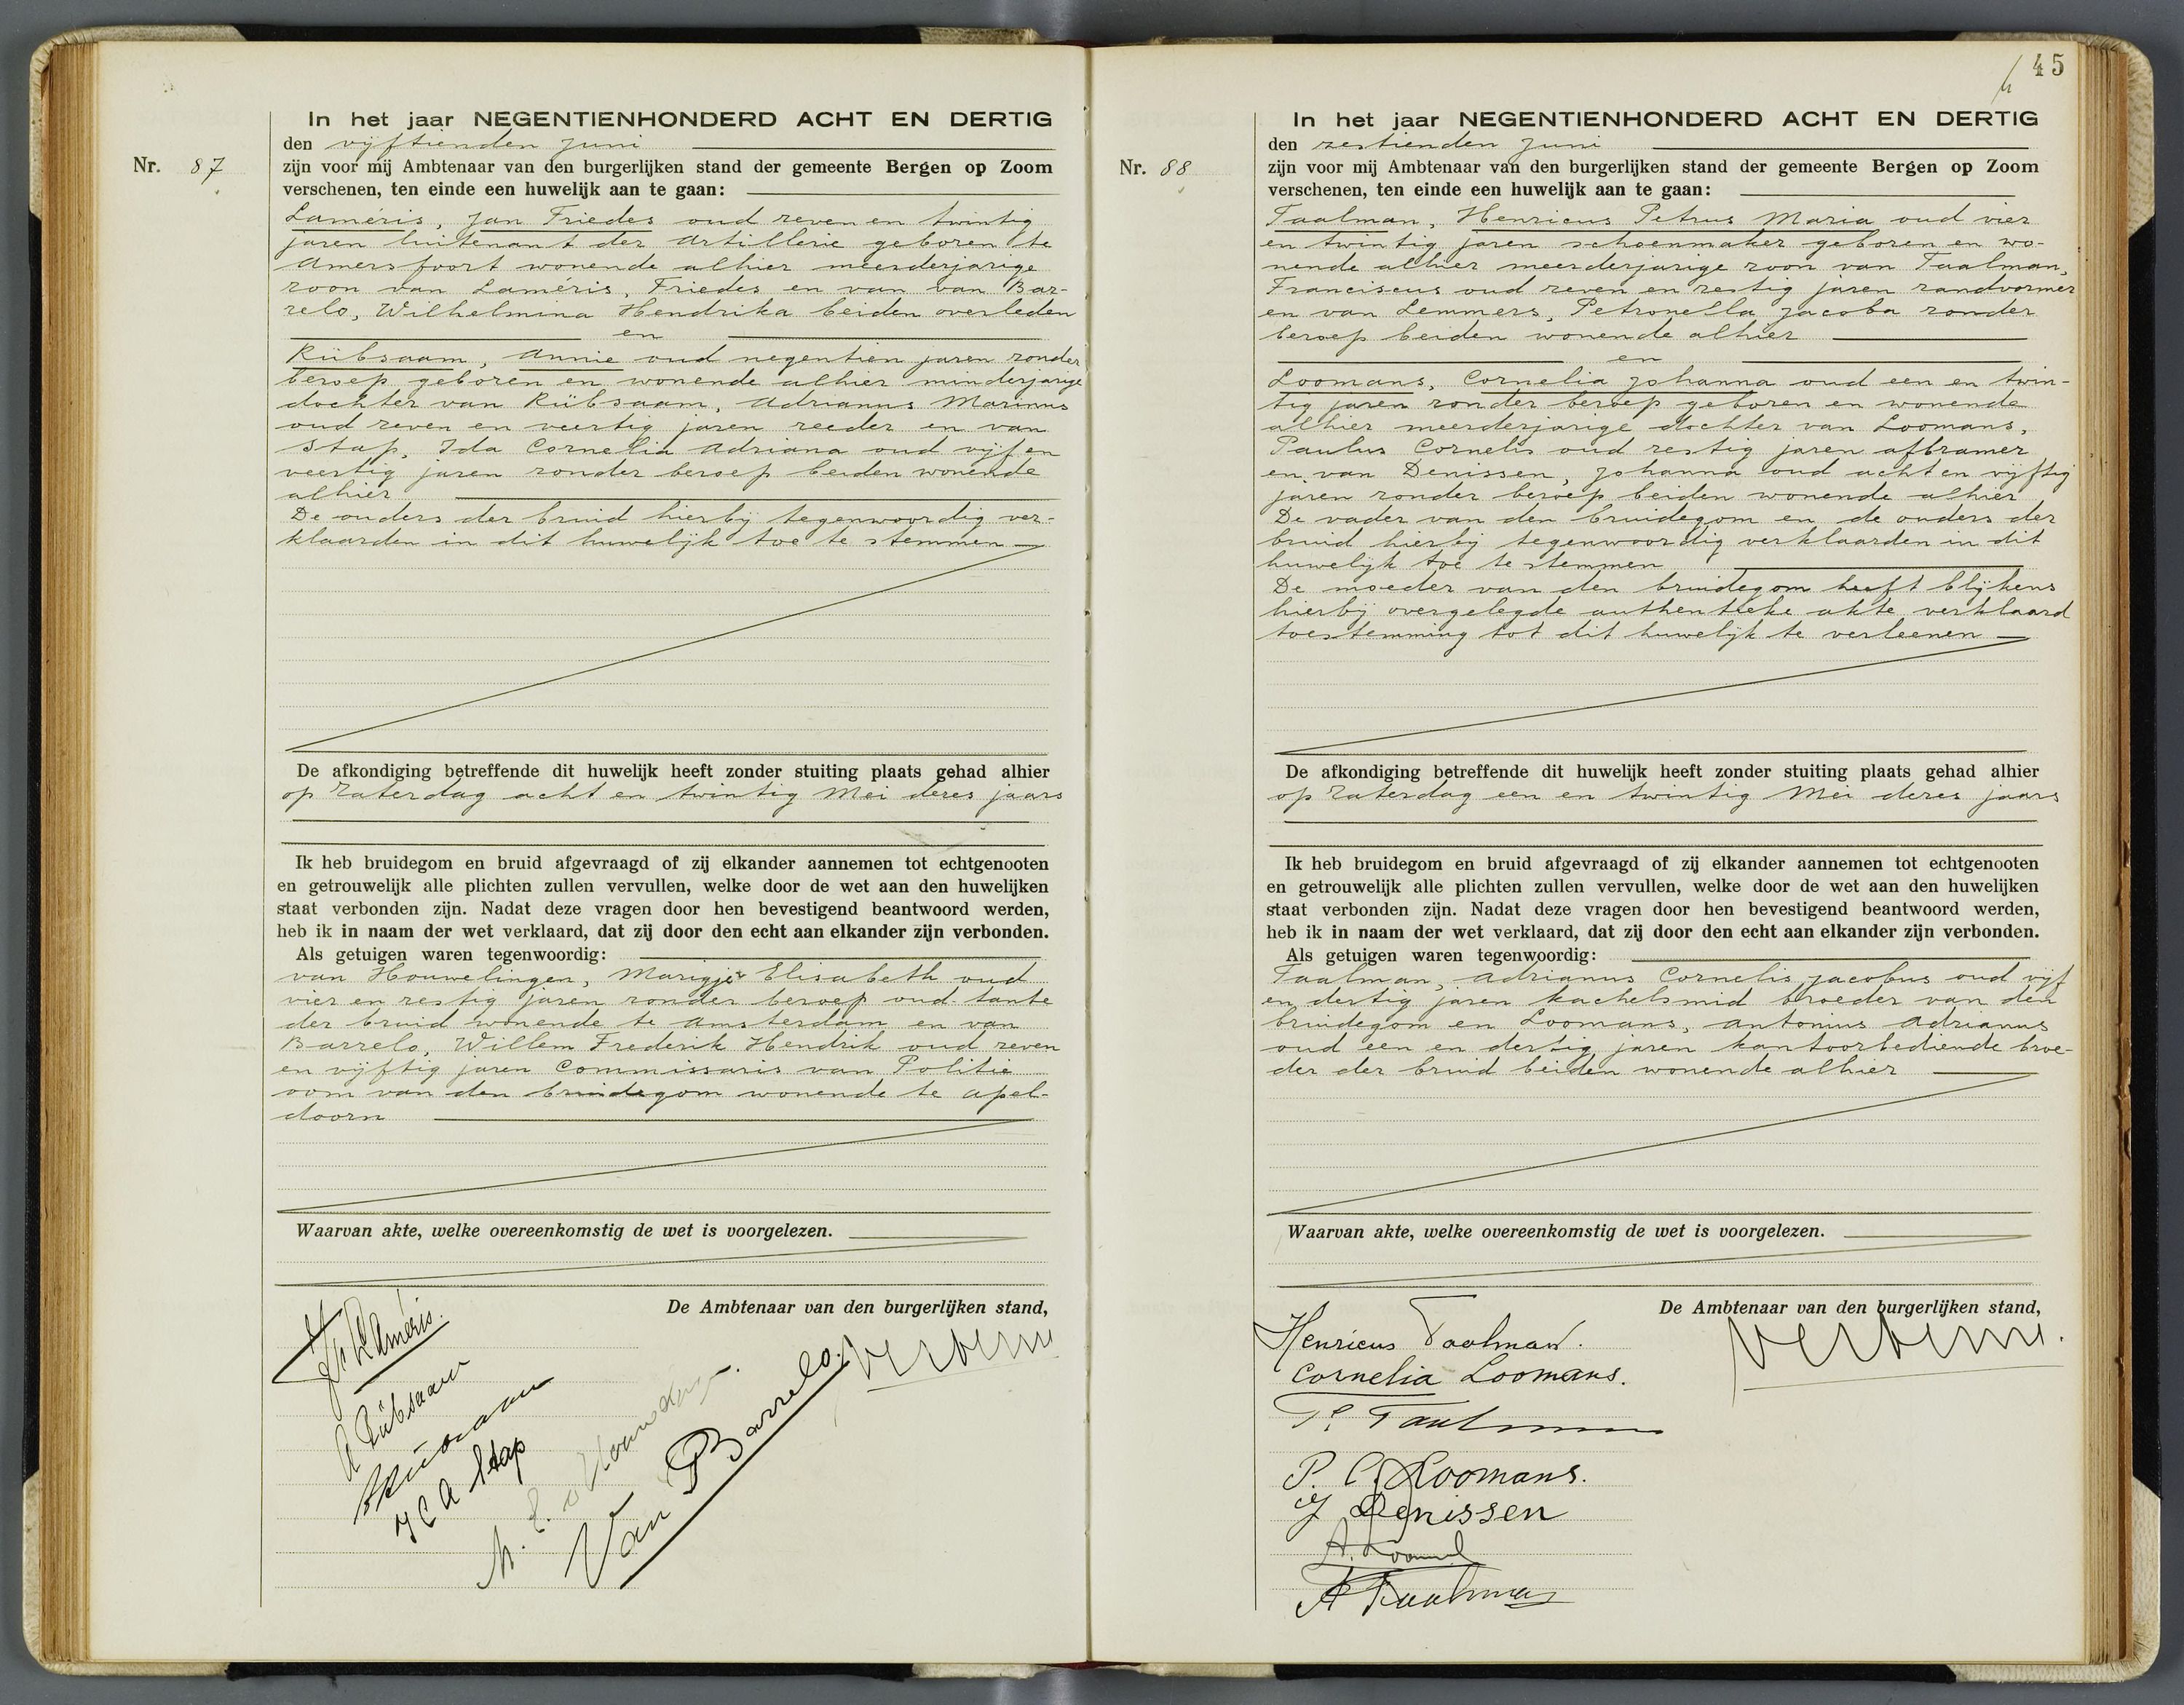 In het jaar NEGENTIENHONDERD ACHT EN DERTIG
den vijftienden Juni
Nr. 87
zijn voor mij Ambtenaar van den burgerlijken stand der gemeente Bergen op Zoom
verschenen, ten einde een huwelijk aan te gaan:
Laméris, Jan Friedes oud zeven en twintig
jaren luitenant der Artillerie geboren te
Amersfoort wonende alhier meerderjarige
zoon van Laméris, Friedes en van van Bar-
relo, Wilhelmina Hendrika beiden overleden
en
Rübsaam, Annie oud negentien jaren zonder
beroep geboren en wonende alhier minderjarige
dochter van Rübsaam, Adrianus Marinus
oud zeven en veertig jaren reeder en van
Stap, Ida Cornelia Adriana oud vijf en
veertig jaren zonder beroep beiden wonende
alhier
De ouders der bruid hierbij tegenwoordig ver-
klaarden in dit huwelijk toe te stemmen
De afkondiging betreffende dit huwelijk heeft zonder stuiting plaats gehad alhier
op Zaterdag acht en twintig Mei dezes jaars
Ik heb bruidegom en bruid afgevraagd of zij elkander aannemen tot echtgenooten
en getrouwelijk alle plichten zullen vervullen, welke door de wet aan den huwelijken
staat verbonden zijn. Nadat deze vragen door hen bevestigend beantwoord werden,
heb ik in naam der wet verklaard, dat zij door den echt aan elkander zijn verbonden.
Als getuigen waren tegenwoordig:
van Houwelingen, Marigje Elisabeth oud
vier en zestig jaren zonder beroep oud-tante
der bruid wonende te Amsterdam en van
Barrelo, Willem Frederik Hendrik oud zeven
en vijftig jaren Commissaris van Politie
oom van den bruidegom wonende te Apel-
doorn
Waarvan akte, welke overeenkomstig de wet is voorgelezen.
De Ambtenaar van den burgerlijken stand,
Laméris.
A Rübsaam
I C A Stap
M. E. v Houwelingen.
Van Barrelo.
45
In het jaar NEGENTIENHONDERD ACHT EN DERTIG
den zestienden Juni
Nr. 88
zijn voor mij Ambtenaar van den burgerlijken stand der gemeente Bergen op Zoom
verschenen, ten einde een huwelijk aan te gaan:
Taalman, Henricus Petrus Maria oud vier
en twintig jaren schoenmaker geboren en wo-
nende alhier meerderjarige zoon van Taalman,
Franciscus oud zeven en zestig jaren zandvormer
en van Lemmers, Petronella Jacoba zonder
beroep beiden wonende alhier
en
Loomans, Cornelia Johanna oud een en twin-
tig jaren zonder beroep geboren en wonende
alhier meerderjarige dochter van Loomans,
Paulus Cornelis oud zestig jaren afbramer
en van Denissen, Johanna oud acht en vijftig
jaren zonder beroep beiden wonende alhier
De vader van den bruidegom en de ouders der
bruid hierbij tegenwoordig verklaarden in dit
huwelijk toe te stemmen
De moeder van den bruidegom heeft blijkens
hierbij overgelegde authentieke akte verklaard
toestemming tot dit huwelijk te verleenen
De afkondiging betreffende dit huwelijk heeft zonder stuiting plaats gehad alhier
op Zaterdag een en twintig Mei dezes jaars
Ik heb bruidegom en bruid afgevraagd of zij elkander aannemen tot echtgenooten
en getrouwelijk alle plichten zullen vervullen, welke door de wet aan den huwelijken
staat verbonden zijn. Nadat deze vragen door hen bevestigend beantwoord werden,
heb ik in naam der wet verklaard, dat zij door den echt aan elkander zijn verbonden.
Als getuigen waren tegenwoordig:
Taalman, Adrianus Cornelis Jacobus oud vijf
en dertig jaren kachelsmid broeder van den
bruidegom en Loomans, Antonius Adrianus
oud een en dertig jaren kantoorbediende broe-
der der bruid beiden wonende alhier
Waarvan akte, welke overeenkomstig de wet is voorgelezen.
De Ambtenaar van den burgerlijken stand,
Henricus Taalman.
Cornelia Loomans.
Taalman
P. C. Loomans.
J Denissen
A. Loomans
A Taalman